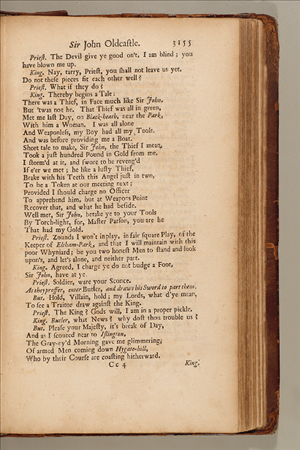 Sir John Oldcastle. 3155
Priest. The Devil give ye good on't, I am blind; you
have blown me up.
King. Nay, tarry, Priest, you shall not leave us yet.
Do not these pieces fit each other well?
Priest. What if they do?
King. Thereby begins a Tale:
There was a Thief, in Face much like Sir John,
But 'twas not he. That Thief was all in green,
Met me last Day, on Black-heath, near the Park,
With him a Woman. I was all alone
And Weaponless, my Boy had all my Tools.
And was before providing me a Boat.
Short tale to make, Sir John, the Thief I mean,
Took a just hundred Pound in Gold from me.
I storm'd at it, and swore to be reveng'd
If e'er we met; he like a lusty Thief,
Brake with his Teeth this Angel just in two,
To be a Token at our meeting next;
Provided I should charge no Officer
To apprehend him, but at Weapons Point
Recover that, and what he had beside.
Well met, Sir John, betake ye to your Tools
By Torch-light, for, Master Parson, you are he
That had my Gold.
Priest. Zounds I won't in play, in fair square Play, of the
Keeper of Eltham-Park, and that I will maintain with this
poor Whyniard; be you two honest Men to stand and look
upon't, and let's alone, and neither part.
King. Agreed, I charge ye do not budge a Foot,
Sir John, have at ye.
Priest. Soldier, ware your Sconce.
As they proffer, enter Butler, and draws his Sword to part them.
But. Hold, Villain, hold; my Lords, what d'ye mean,
To see a Traitor draw against the King.
Priest. The King? Gods will, I am in a proper pickle.
King. Butler, what News? why dost thou trouble us?
But. Please your Majesty, it's break of Day,
And as I scouted near to Islington,
The Gray-ey'd Morning gave me glimmering,
Of armed Men coming down Hygate-hill,
Who by their Course are coasting hitherward.
Cc 4 King.